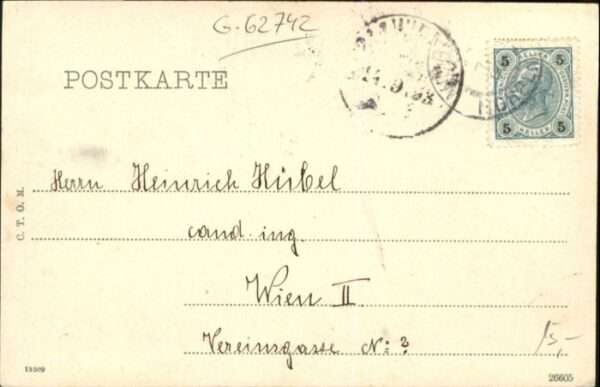 G. 62742
POSTKARTE
14. 9. 03
5 5
5 HELLER 5
C. T. O. M.
Herrn Heinrich Hübel
cand. ing.
Wien II
Vereinsgasse N: ?
15,-
26605